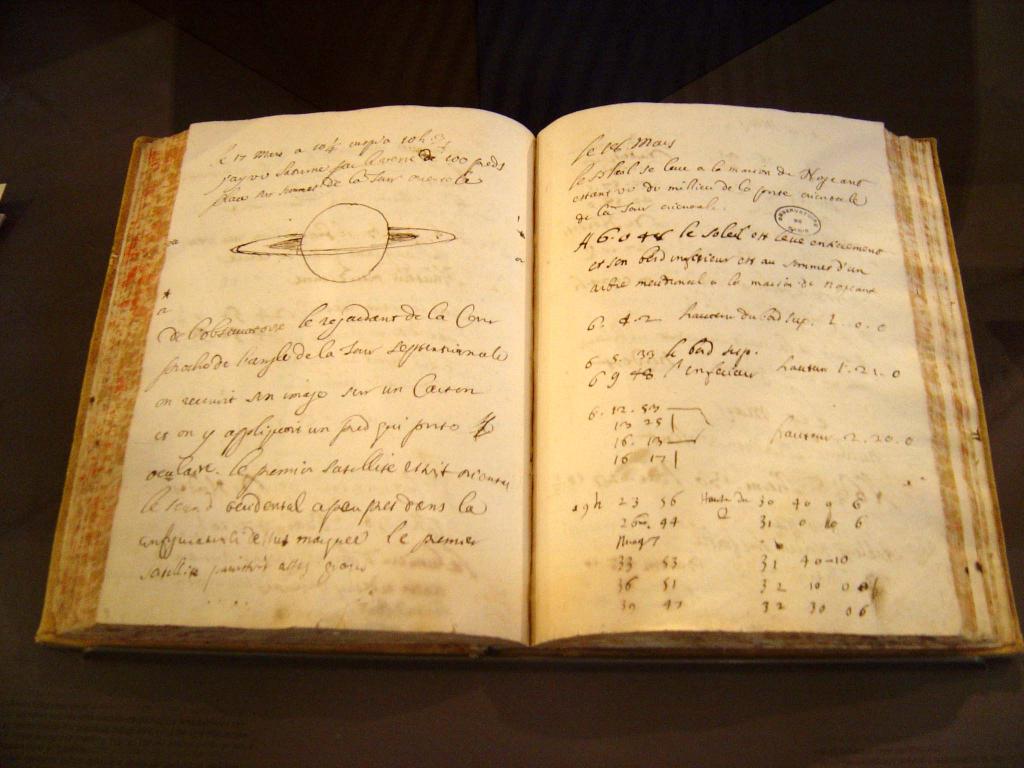 le 17 Mars a 10 h
j'ay vu Saturne par le verre de 100 pieds
sur sommet de la Tour orientale
de l'observatoire le regardant de la Cour
proche de l'angle de la Tour Septentrionale
on recevoit son image sur un Carton
et on y appliquoit un pied qui porte
oculaire. le premier satellite estoit oriental
le second occidental a peu pres dans la
configuration dessus marquée le premier
satellite paroissoit assez gros
le 18 Mars
le Soleil se leve a la maison de
estant vu du milieu de la porte orientale
de la Tour orientale.
OBSERVATOIRE DE PARIS
A 6. 0 48 le soleil est levé entierement
et son bord inferieur est au sommet d'un
arbre meridional a la maison de
6. 4. 2 hauteur du bord sup. 1. 0. 0
6 5. 33 le bord sup.
6 9 48 l'inferieur hauteur 1. 21. 0
6. 12. 53
13 25
16. 13 hauteur 2. 20. 0
16 17
19h 23 56 30 40 0
26 44 31 0
33 53 31 40 10
36 51 32 10 0
39 47 32 30 06